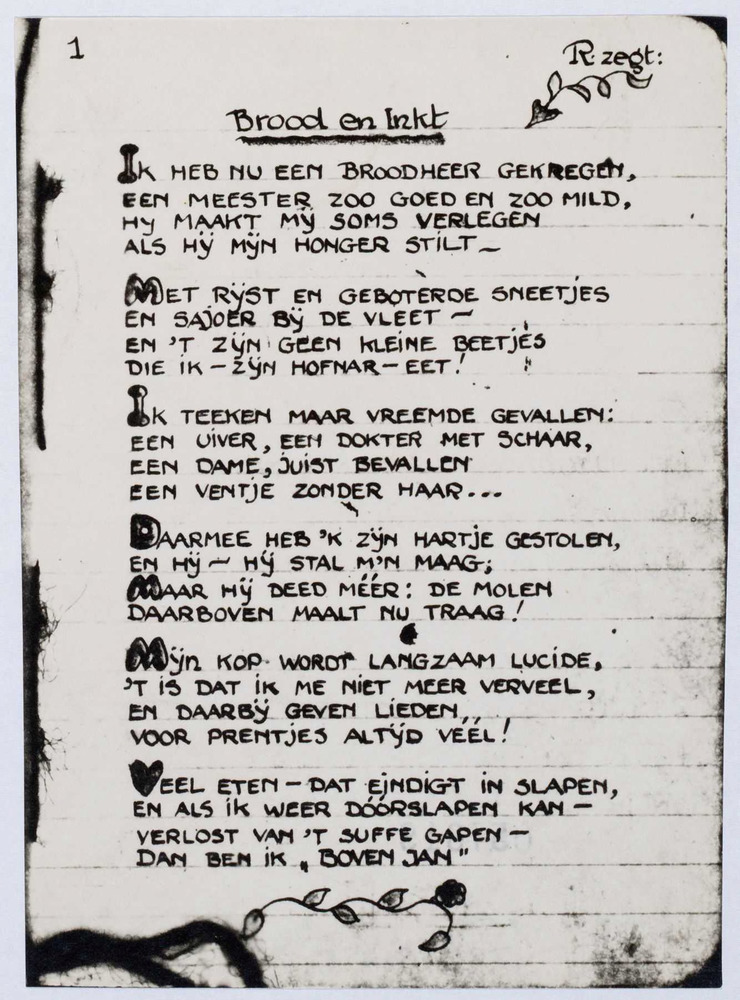 1
R. zegt:
Brood en Inkt
IK HEB NU EEN BROODHEER GEKREGEN,
EEN MEESTER ZOO GOED EN ZOO MILD,
HY MAAKT MŸ SOMS VERLEGEN
ALS HŸ MŸN HONGER STILT –
MET RŸST EN GEBOTERDE SNEETJES
EN SAJOER BŸ DE VLEET –
EN 'T ZŸN GEEN KLEINE BEETJES
DIE IK – ZŸN HOFNAR – EET!
IK TEEKEN MAAR VREEMDE GEVALLEN:
EEN UIVER, EEN DOKTER MET SCHAAR,
EEN DAME, JUIST BEVALLEN
EEN VENTJE ZONDER HAAR...
DAARMEE HEB 'K ZŸN HARTJE GESTOLEN,
EN HŸ – HŸ STAL M'N MAAG;
MAAR HŸ DEED MÉÉR: DE MOLEN
DAARBOVEN MAALT NU TRAAG!
MŸN KOP WORDT LANGZAAM LUCIDE,
'T IS DAT IK ME NIET MEER VERVEEL,
EN DAARBŸ GEVEN LIEDEN
VOOR PRENTJES ALTŸD VÉÉL!
VEEL ETEN – DAT EJNDIGT IN SLAPEN,
EN ALS IK WEER DÓÓRSLAPEN KAN –
VERLOST VAN 'T SUFFE GAPEN –
DAN BEN IK „BOVEN JAN"